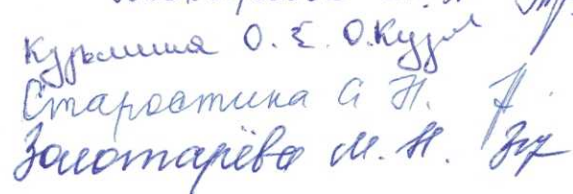 Кузьмина О. Е. О.Кузм
Старостина А Н.
Золотарёва М. Н.